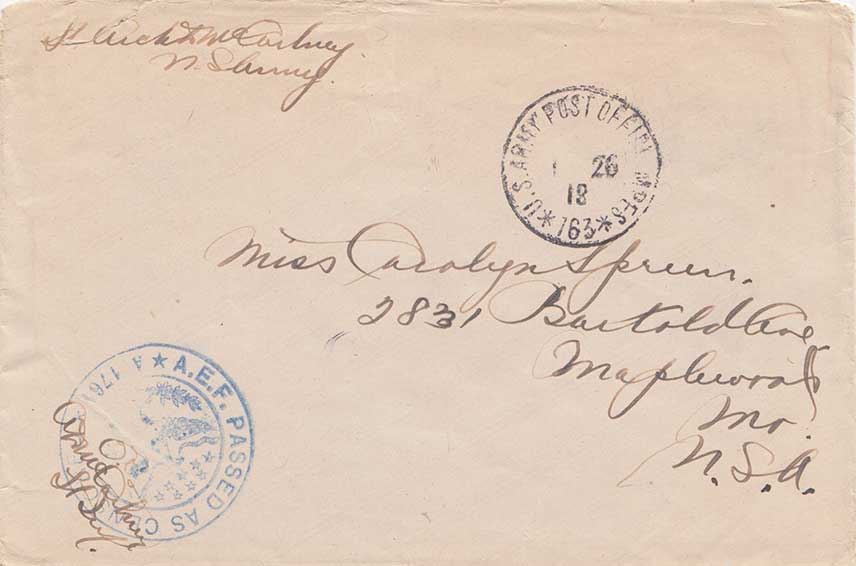 Lt Archd McCartney.
U.S Army.
U.S. ARMY POST OFFICE MPES
26
18
*763*
Miss Carolyn Spreen.
2831 Bartold Ave.
Maplewood
Mo.
U.S.A.
A.E.F. PASSED AS CENSORED
A 1761
OK